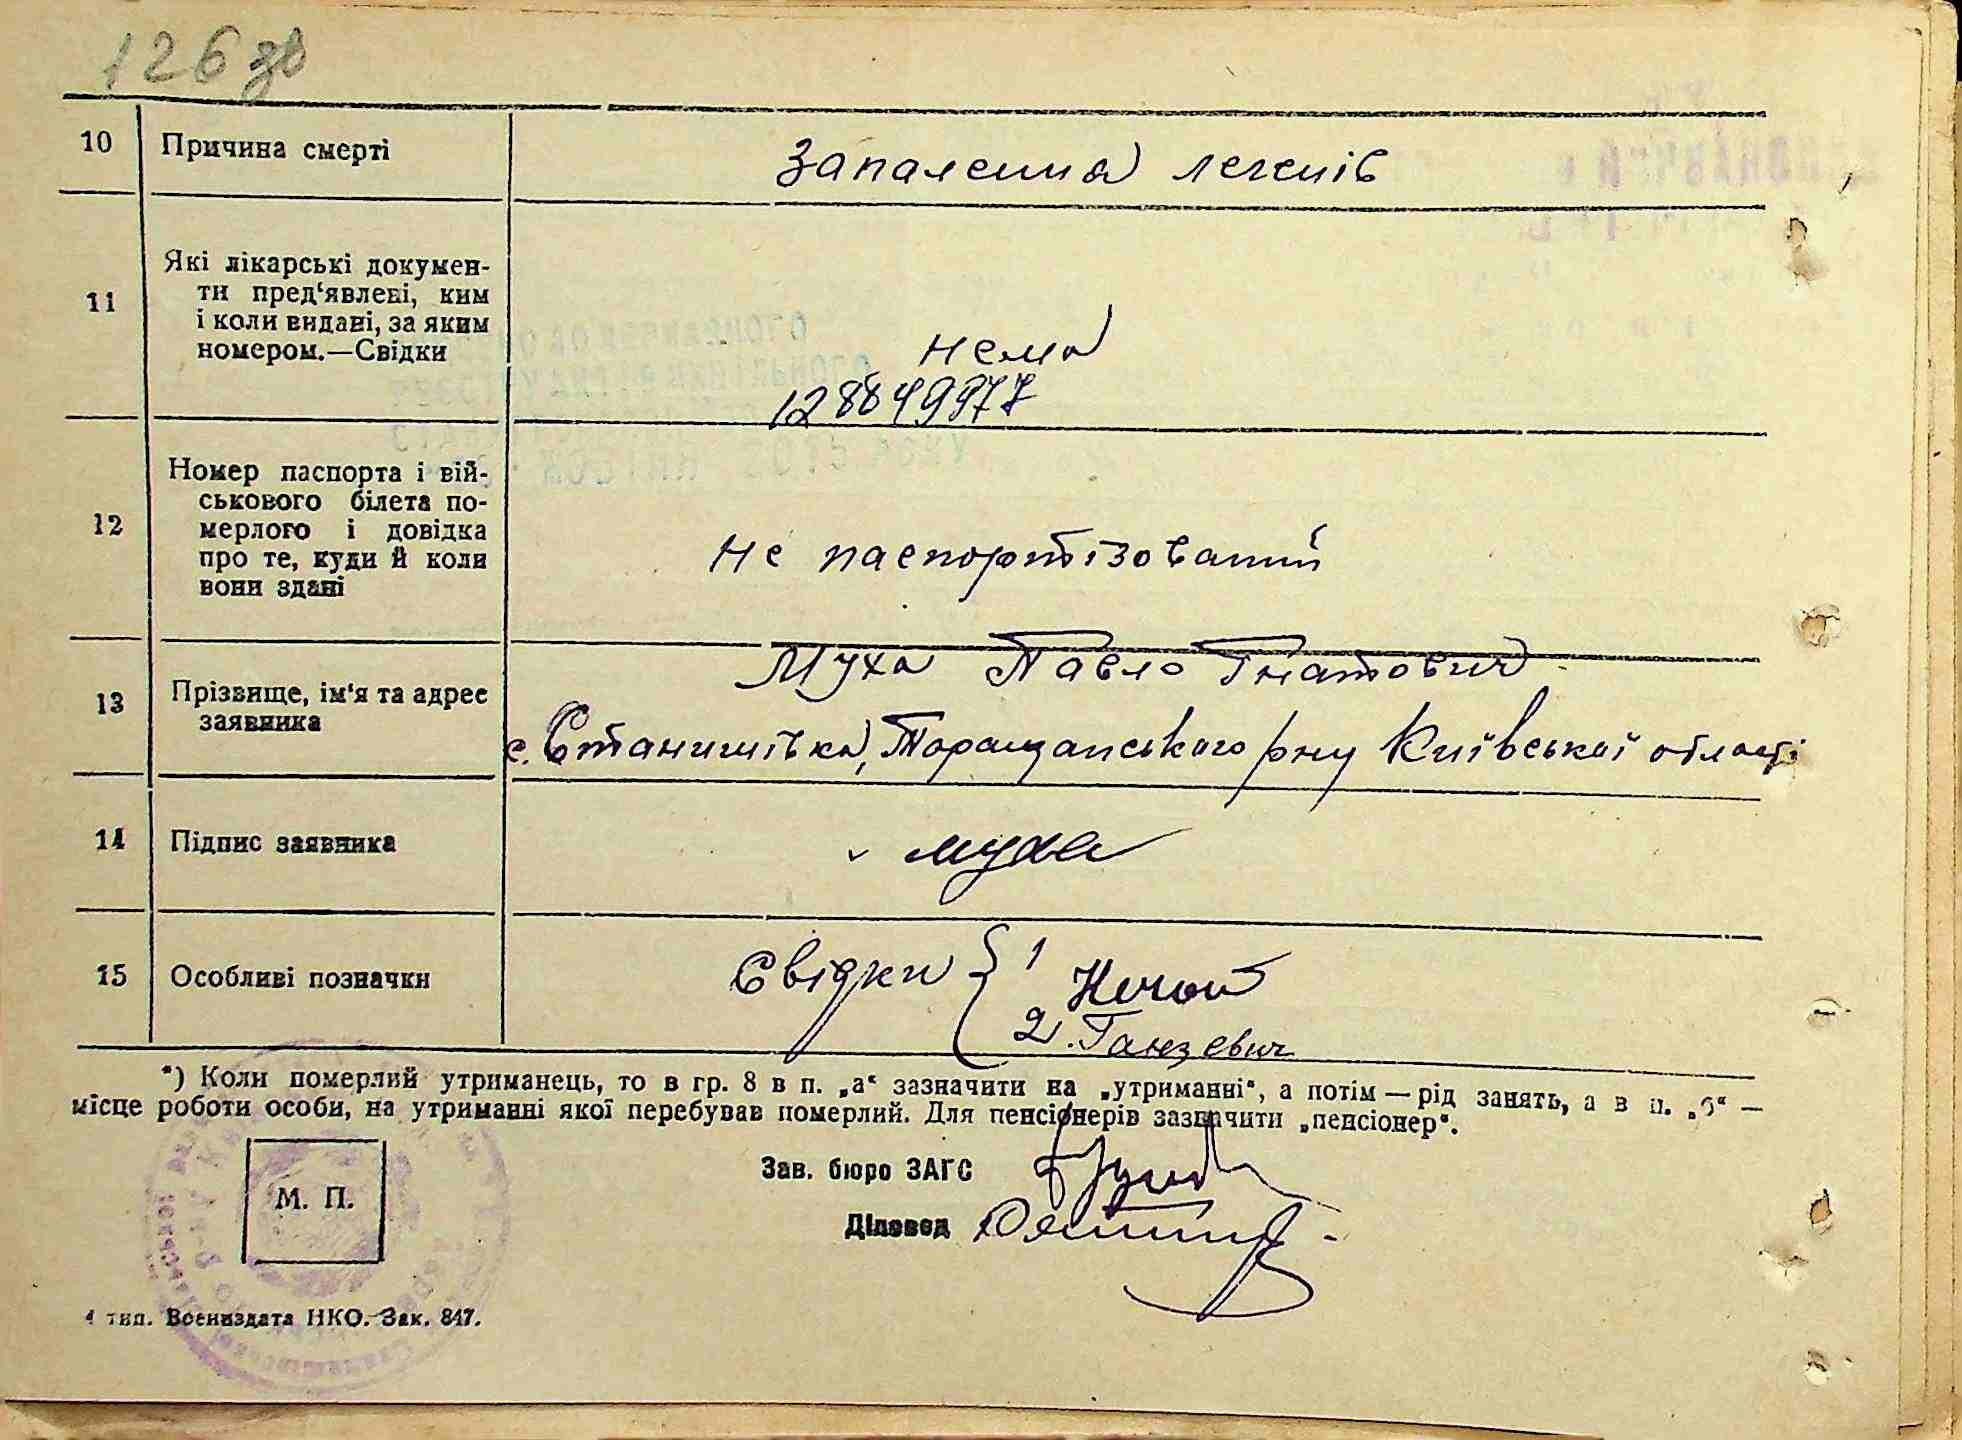 126 зв
10 Причина смерті Запалення легенів
11 Які лікарські докумен-
ти пред'явлені, ким
і коли видані, за яким
номером.—Свідки
нема
128849977
12 Номер паспорта і вій-
ськового білета по-
мерлого і довідка
про те, куди й коли
вони здані
не паспортізований
13 Прізвище, ім'я та адрес
заявника
Муха Павло Гнатович
с. Станишівка, Таращанського рну Київської області
14 Підпис заявника Муха
15 Особливі позначки Свідки { 1
2. Ганзевич
*) Коли померлий утриманець, то в гр. 8 в п. „а“ зазначити на „утриманні“, а потім — рід занять, а в п. „б“ —
місце роботи особи, на утриманні якої перебував померлий. Для пенсіонерів зазначити „пенсіонер“.
Зав. бюро ЗАГС
М. П.
Діловод
4 тип. Воениздата НКО. Зак. 847.